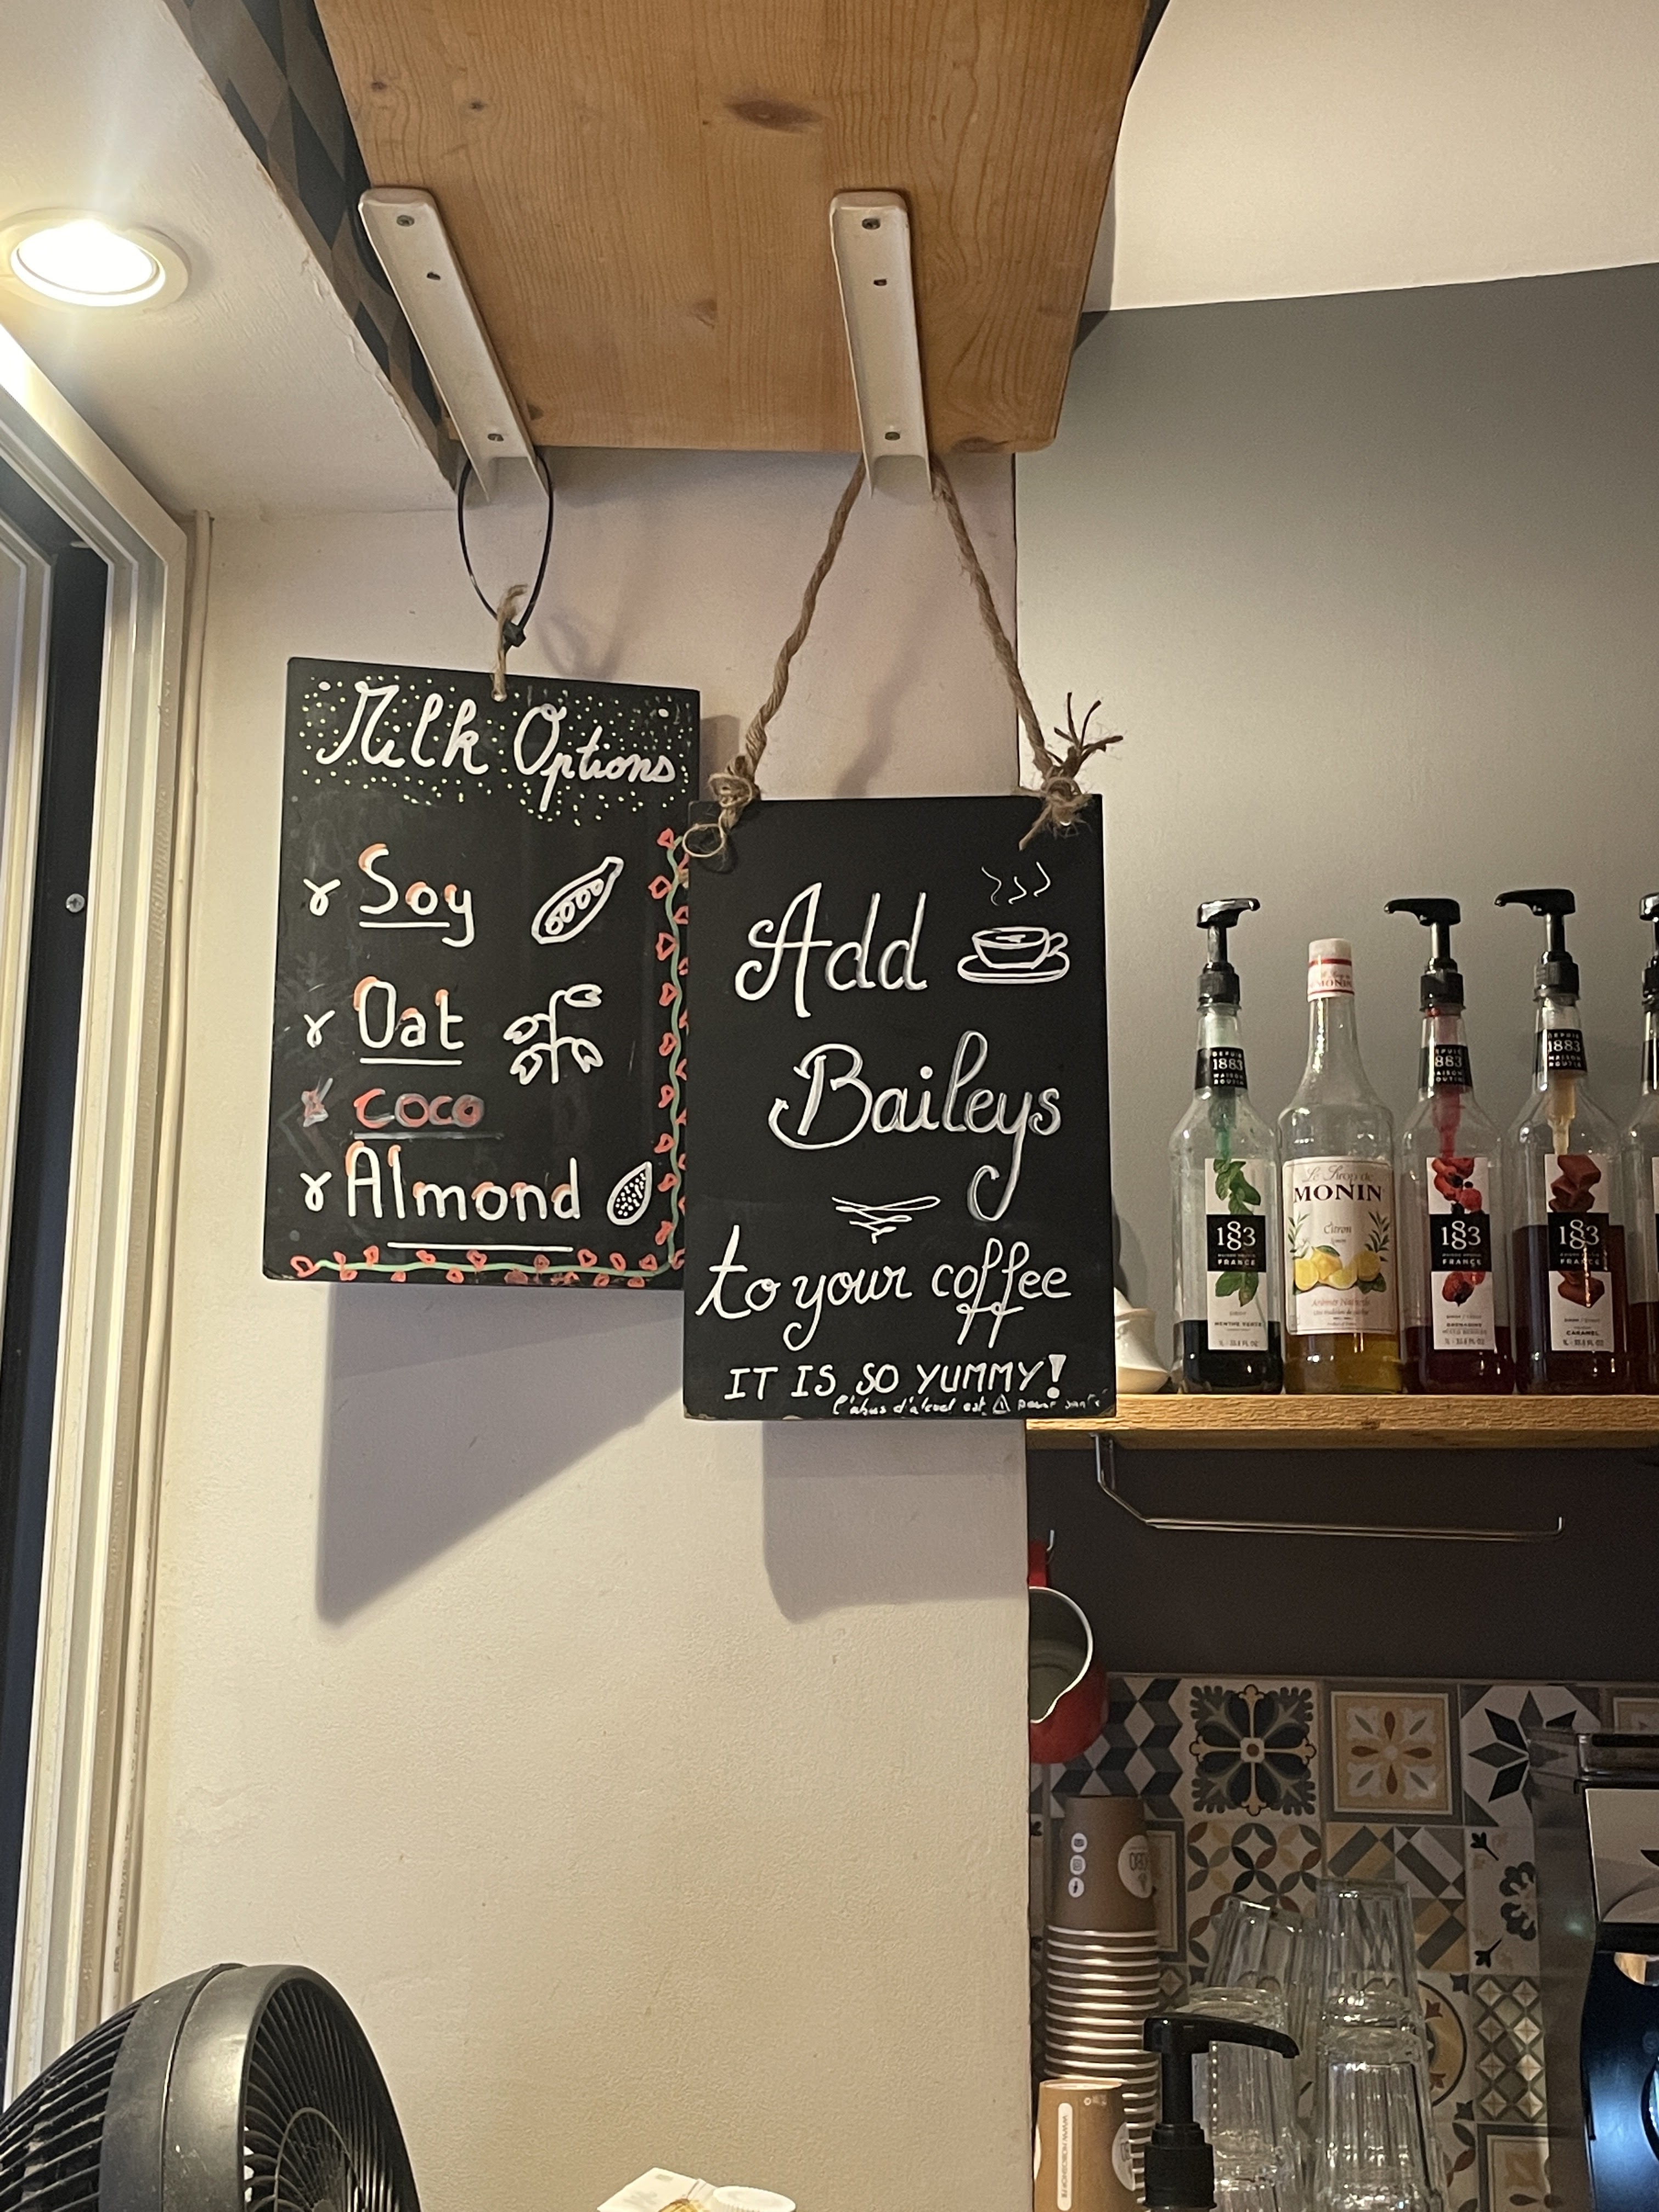 Milk Options
Soy
Oat
coco
Almond
Add
Baileys
to your coffee
IT IS SO YUMMY!
l'abus d'alcool est
DEPUIS
1883
MAISON
ROUTIN
1883
FRANCE
MENTHE VERTE
Le Sirop de
MONIN
Citron
DEPUIS
1883
MAISON
ROUTIN
1883
FRANCE
DEPUIS
1883
MAISON
ROUTIN
1883
FRANCE
CARAMEL